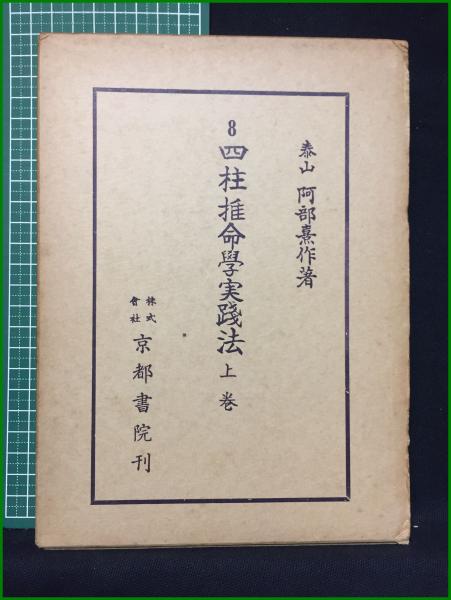 泰山 阿部熹作著
8 四柱推命學実踐法 上巻
株式會社 京都書院刊